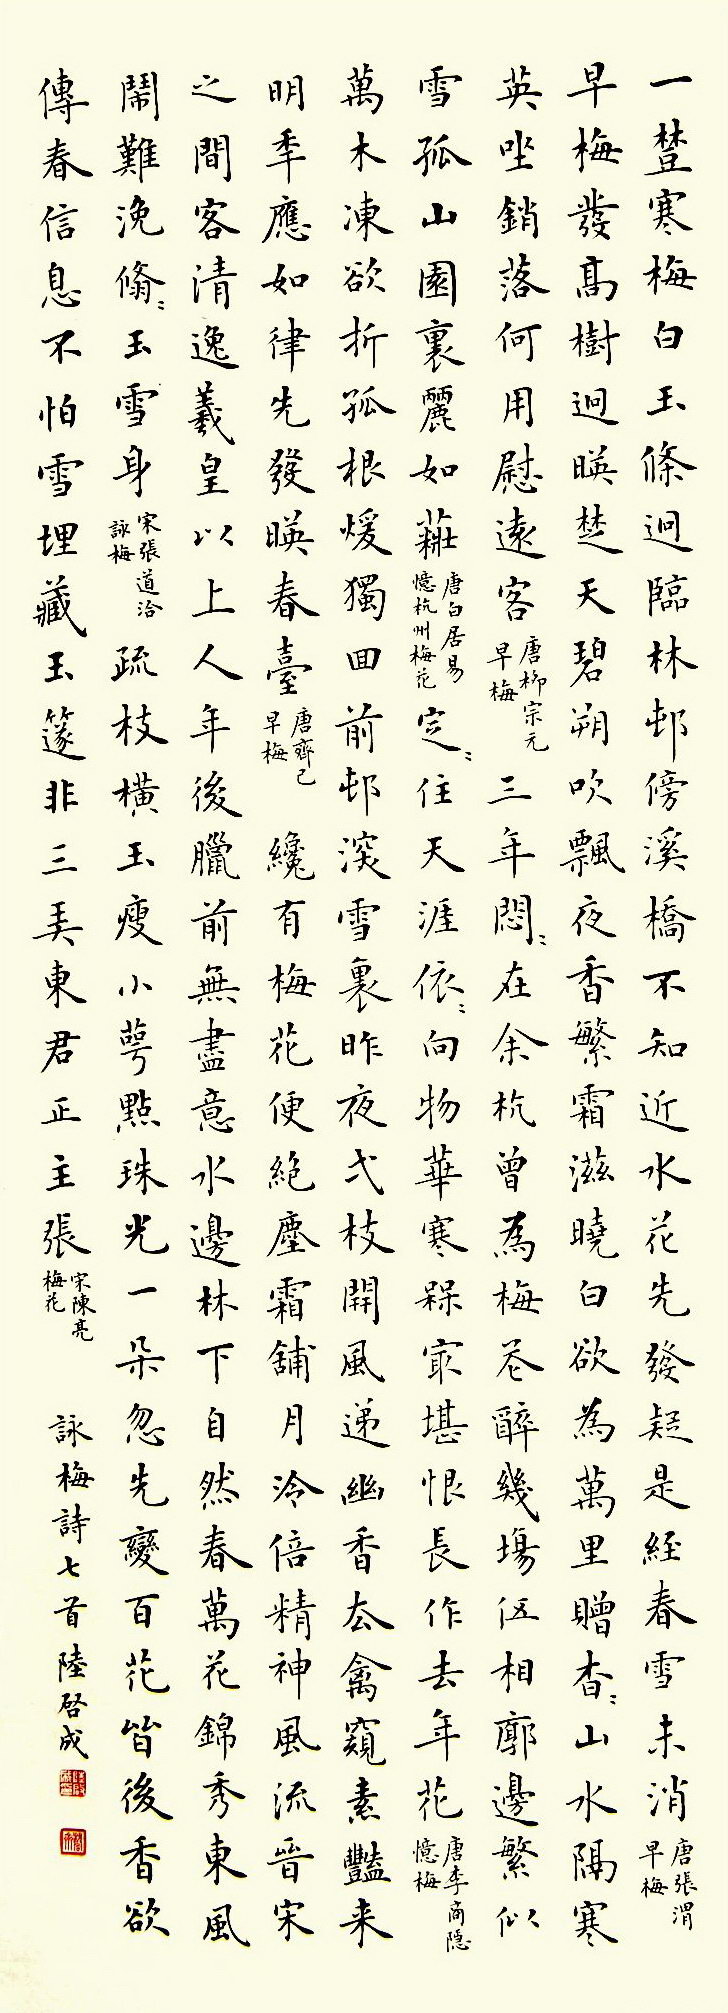 一樹寒梅白玉條迥臨林邨傍溪橋不知近水花先發疑是経春雪未消 唐張渭早梅
早梅發高樹迥暎楚天碧朔吹飄夜香繁霜滋曉白欲為萬里贈杳〻山水隔寒
英坐銷落何用慰遠客 唐柳宗元早梅 三年悶〻在余杭曾為梅花醉幾場伍相廟邊繁似
雪孤山園裏麗如粧 唐白居易憶杭州梅花 定〻住天涯依〻向物華寒槑冣堪恨長作去年花 唐李商隱憶梅
萬木凍欲折孤根煖獨回前邨深雪裏昨夜弌枝開風递幽香去禽窺素豔来
明年應如律先發暎春臺 唐齊己早梅 纔有梅花便絶塵霜鋪月冷倍精神風流晉宋
之間客清逸羲皇以上人年後臘前無盡意水邊林下自然春萬花錦秀東風
鬧難浼翛〻玉雪身 宋張道洽詠梅 疏枝橫玉瘦小萼點珠光一朵忽先變百花皆後香欲
傳春信息不怕雪埋藏玉篴非三弄東君正主張 宋陳亮梅花 詠梅詩七首陸啓成